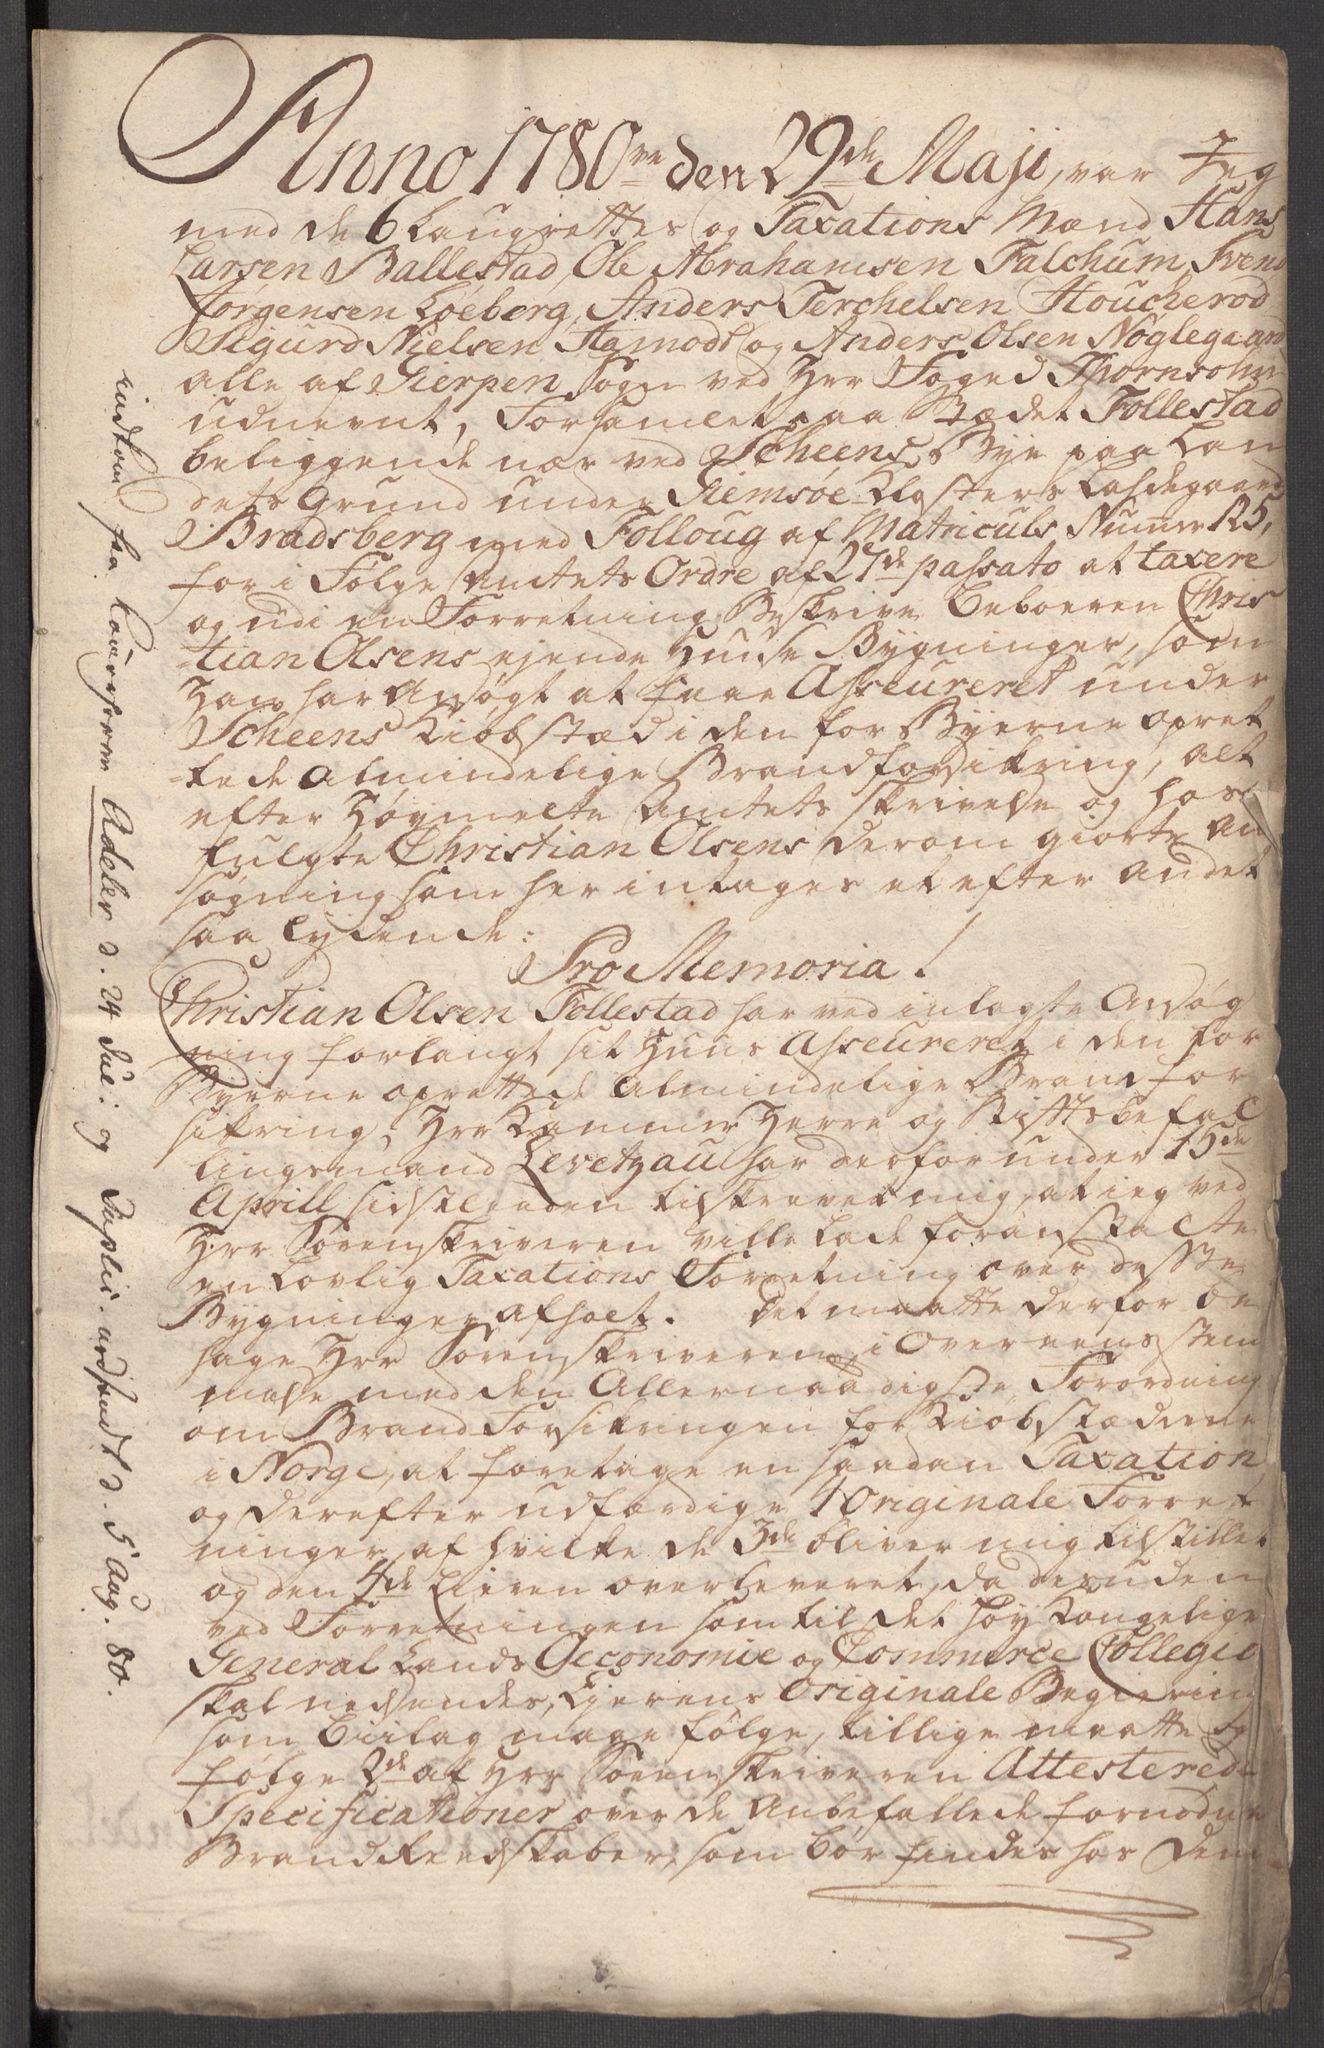 Anno 1780ve den 29de Maji, var Jeg
med de 6 Laugrettes og Taxations Mænd Hans
Larsen Ballestad, Ole Abrahamsen Falchum, Svend
Jørgensen Løeberg, Anders Terchelsen Houcherod
Sigurd Nielsen Hamodt og Anders Olsen Nøglegaard
alle af Gierpen Sogn ved Herr Foged Thornsohn
udnevnt, Forsamlet paa Stædet Follestad
beliggende nær ved Scheens Bye paa Lan
dets Grund under Giemsøe Closters Ladegaard
Bradsberg med Følloug af Matriculs Numer 125,
for i Følge Amtets Ordre af 27de passato at taxere
og udi en Forretning Beskrive Beboeren Chris
tian Olsens ejende Huuse Bygninger, som
Han har Ansøgt at faae Asseureret under
Scheens Kiøbstæd i den for Byerne opret
tede Almindelige Brandforsikring, alt
efter Høymelte Amtets Skrivelse og hos
fulgte Christian Olsens derom giorte An
søgning som her intages et efter Andet
saa lydende:
Pro Memoria!
Christian Olsen Follestad har ved inlagte Ansøg
ning forlangt sit Huus Asseureret i den for
Byerne oprettede Almindelige Brandfor
sikring, Herr Kammer Herre og Stiftsbefal
lingsmand Levetzau har derfor under 15de
Aprill sidstleden tilskrevet mig, at ieg ved
Herr Sorenskriveren ville lade foranstalte
en Lovlig Taxations Forretning over disse
Bygninger afholt. Det maatte derfor be
hage Herr Sorenskriveren, i Overeensstem
melse med den Allernaadigste Forordning
om Brand Forsikringen for Kiøbstæderne
i Norge, at foretage en saadan Taxation
og derefter udfærdige 4 Originale Forret
ninger, af hvilke de 3de bliver mig tilstillet
og den 4de Eieren overleveret, da desuden
ved Forretningen som til det Høy Kongelige
General Lands Oeconomie og Commerce Collegio
skal nedsendes, Ejerens Originale Begiering
som Biilag mage følge, tillige maatte og
følge 2de af Herr Sorenskriveren Attesterede
Specificationer over de Anbefallede fornødne
Brandreedskaber, som bør findes hos dem
indkom fra Adeler d. 24 Jul: og Duplic. udsendt d. 5 Aug. 80.